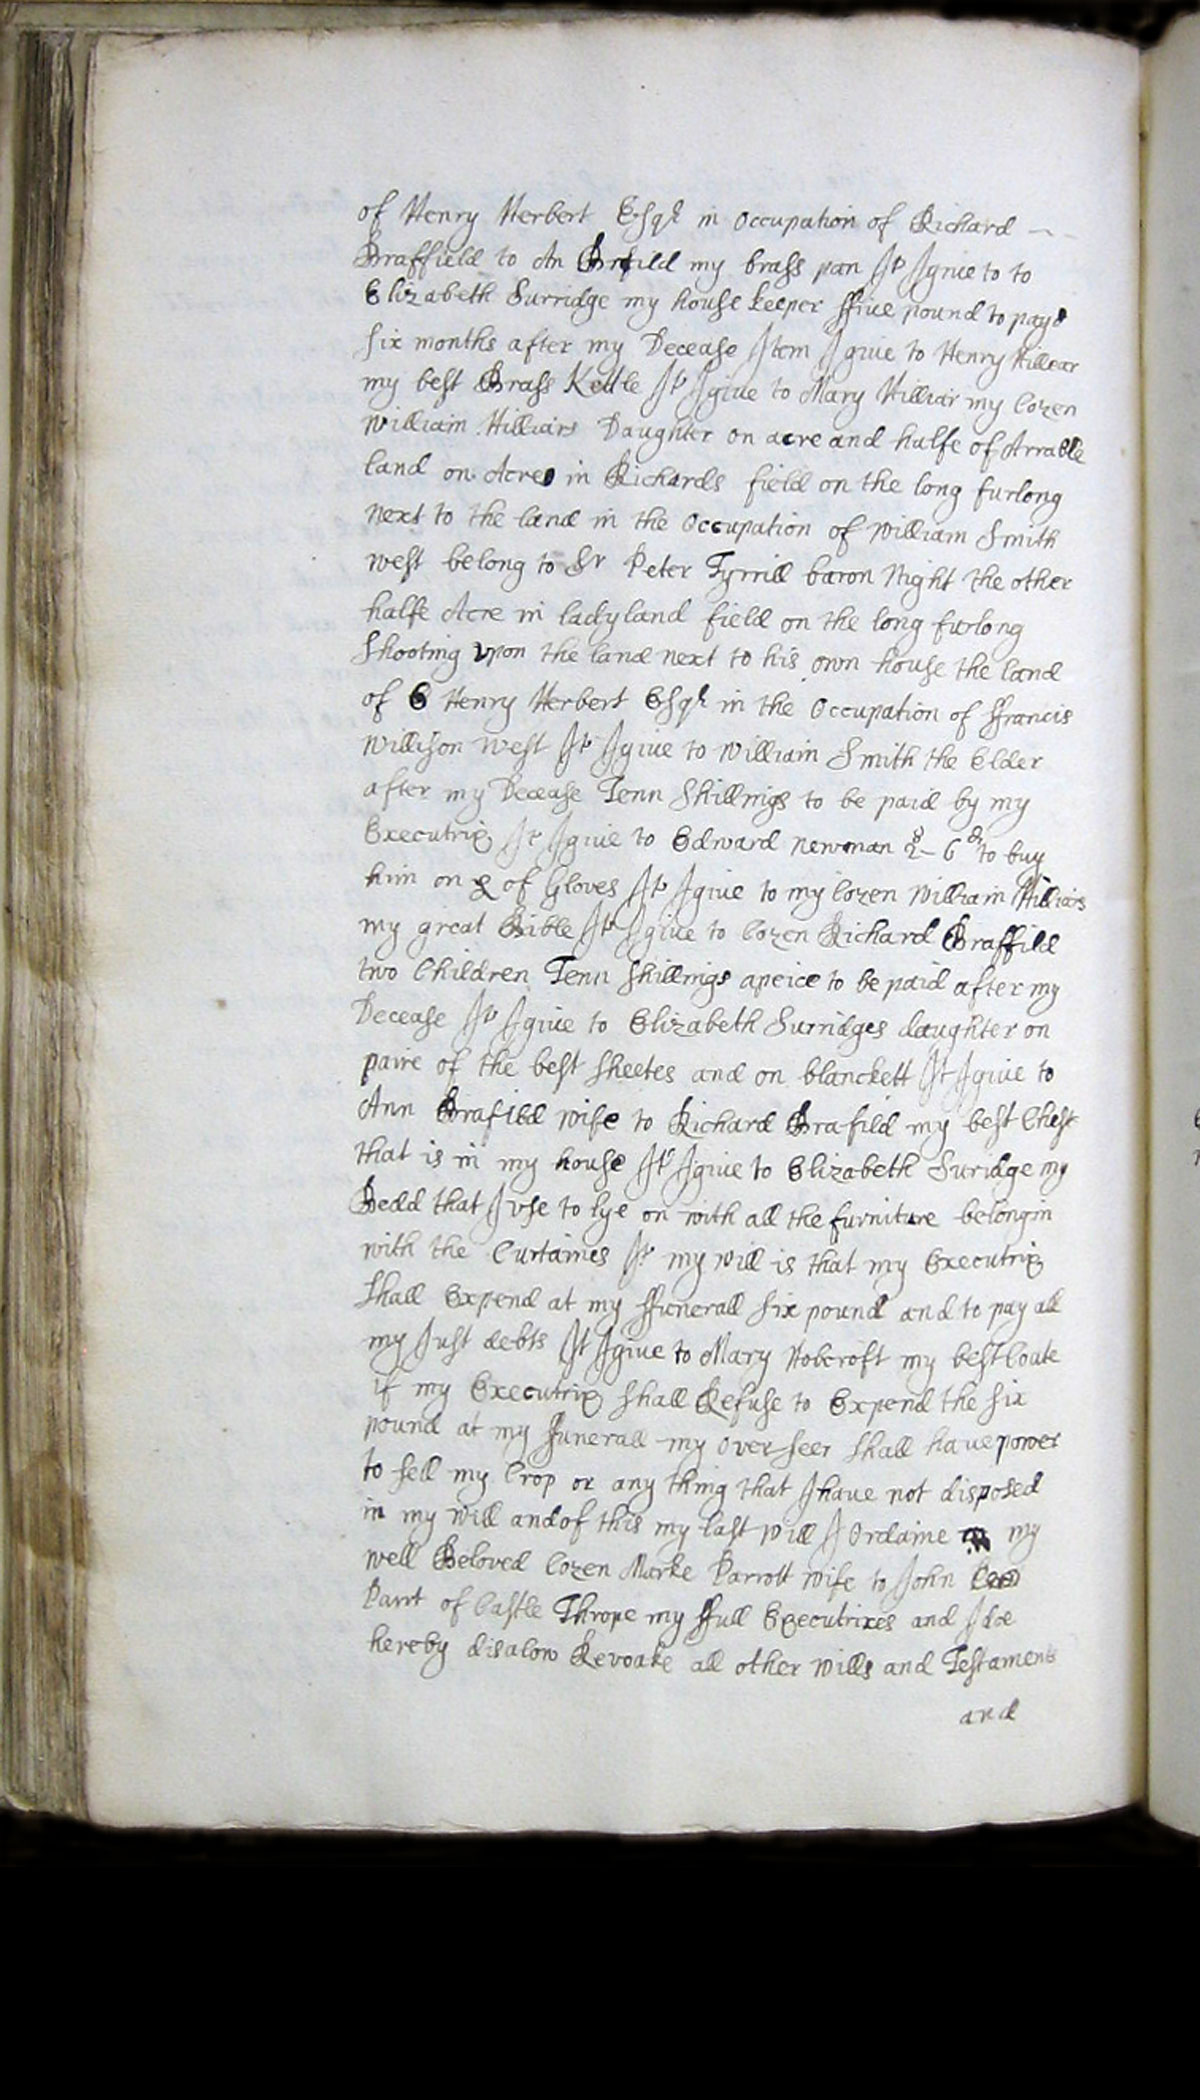 of Henry Herbert Esqr in Occupation of Richard
Braffield to An Brafild my brass pan It I give to to
Elizabeth Surridge my house keeper ffive pound to payd
six months after my Decease Item I give to Henry Hillear
my best Brass Kettle It I give to Mary Hilliar my Cozen
William Hilliars Daughter on acre and halfe of Arrable
land on Acre in Richards field on the long furlong
next to the land in the Occupation of William Smith
west belong to Sr Peter Tyrrill baron Night the other
halfe Acre in ladyland field on the long furlong
shooting upon the land next to his own house the land
of Henry Herbert Esqr in the Occupation of ffrancis
Willison west It I give to William Smith the Elder
after my Decease Tenn shillings to be paid by my
Executrix It I give to Edward newman 2s - 6d to buy
him on p of Gloves It I give to my Cozen William Hilliars
my great Bible It I give to Cozen Richard Braffild
two Children Tenn shillings apeice to be paid after my
Decease It I give to Elizabeth Surridges daughter on
paire of the best sheetes and on blanckett It I give to
Ann Brafild wife to Richard Brafild my best Chest
that is in my house It I give to Elizabeth Suridge my
Bedd that I vse to lye on with all the furniture belongin
with the Curtaines It my will is that my Executrix
shall Expend at my ffunerall six pound and to pay all
my Just debts It I give to Mary Hobcroft my best Coate
if my Executrix shall Refuse to Expend the six
pound at my funerall my over seer shall have power
to sell my Crop or any thing that I have not disposed
in my will and of this my last will I Ordaine my
well Beloved Cozen Marke Parrott wife to John
Parrt of Castle Thrope my ffull Executrixes and I doe
hereby disalow Revoake all other wills and Testaments
and